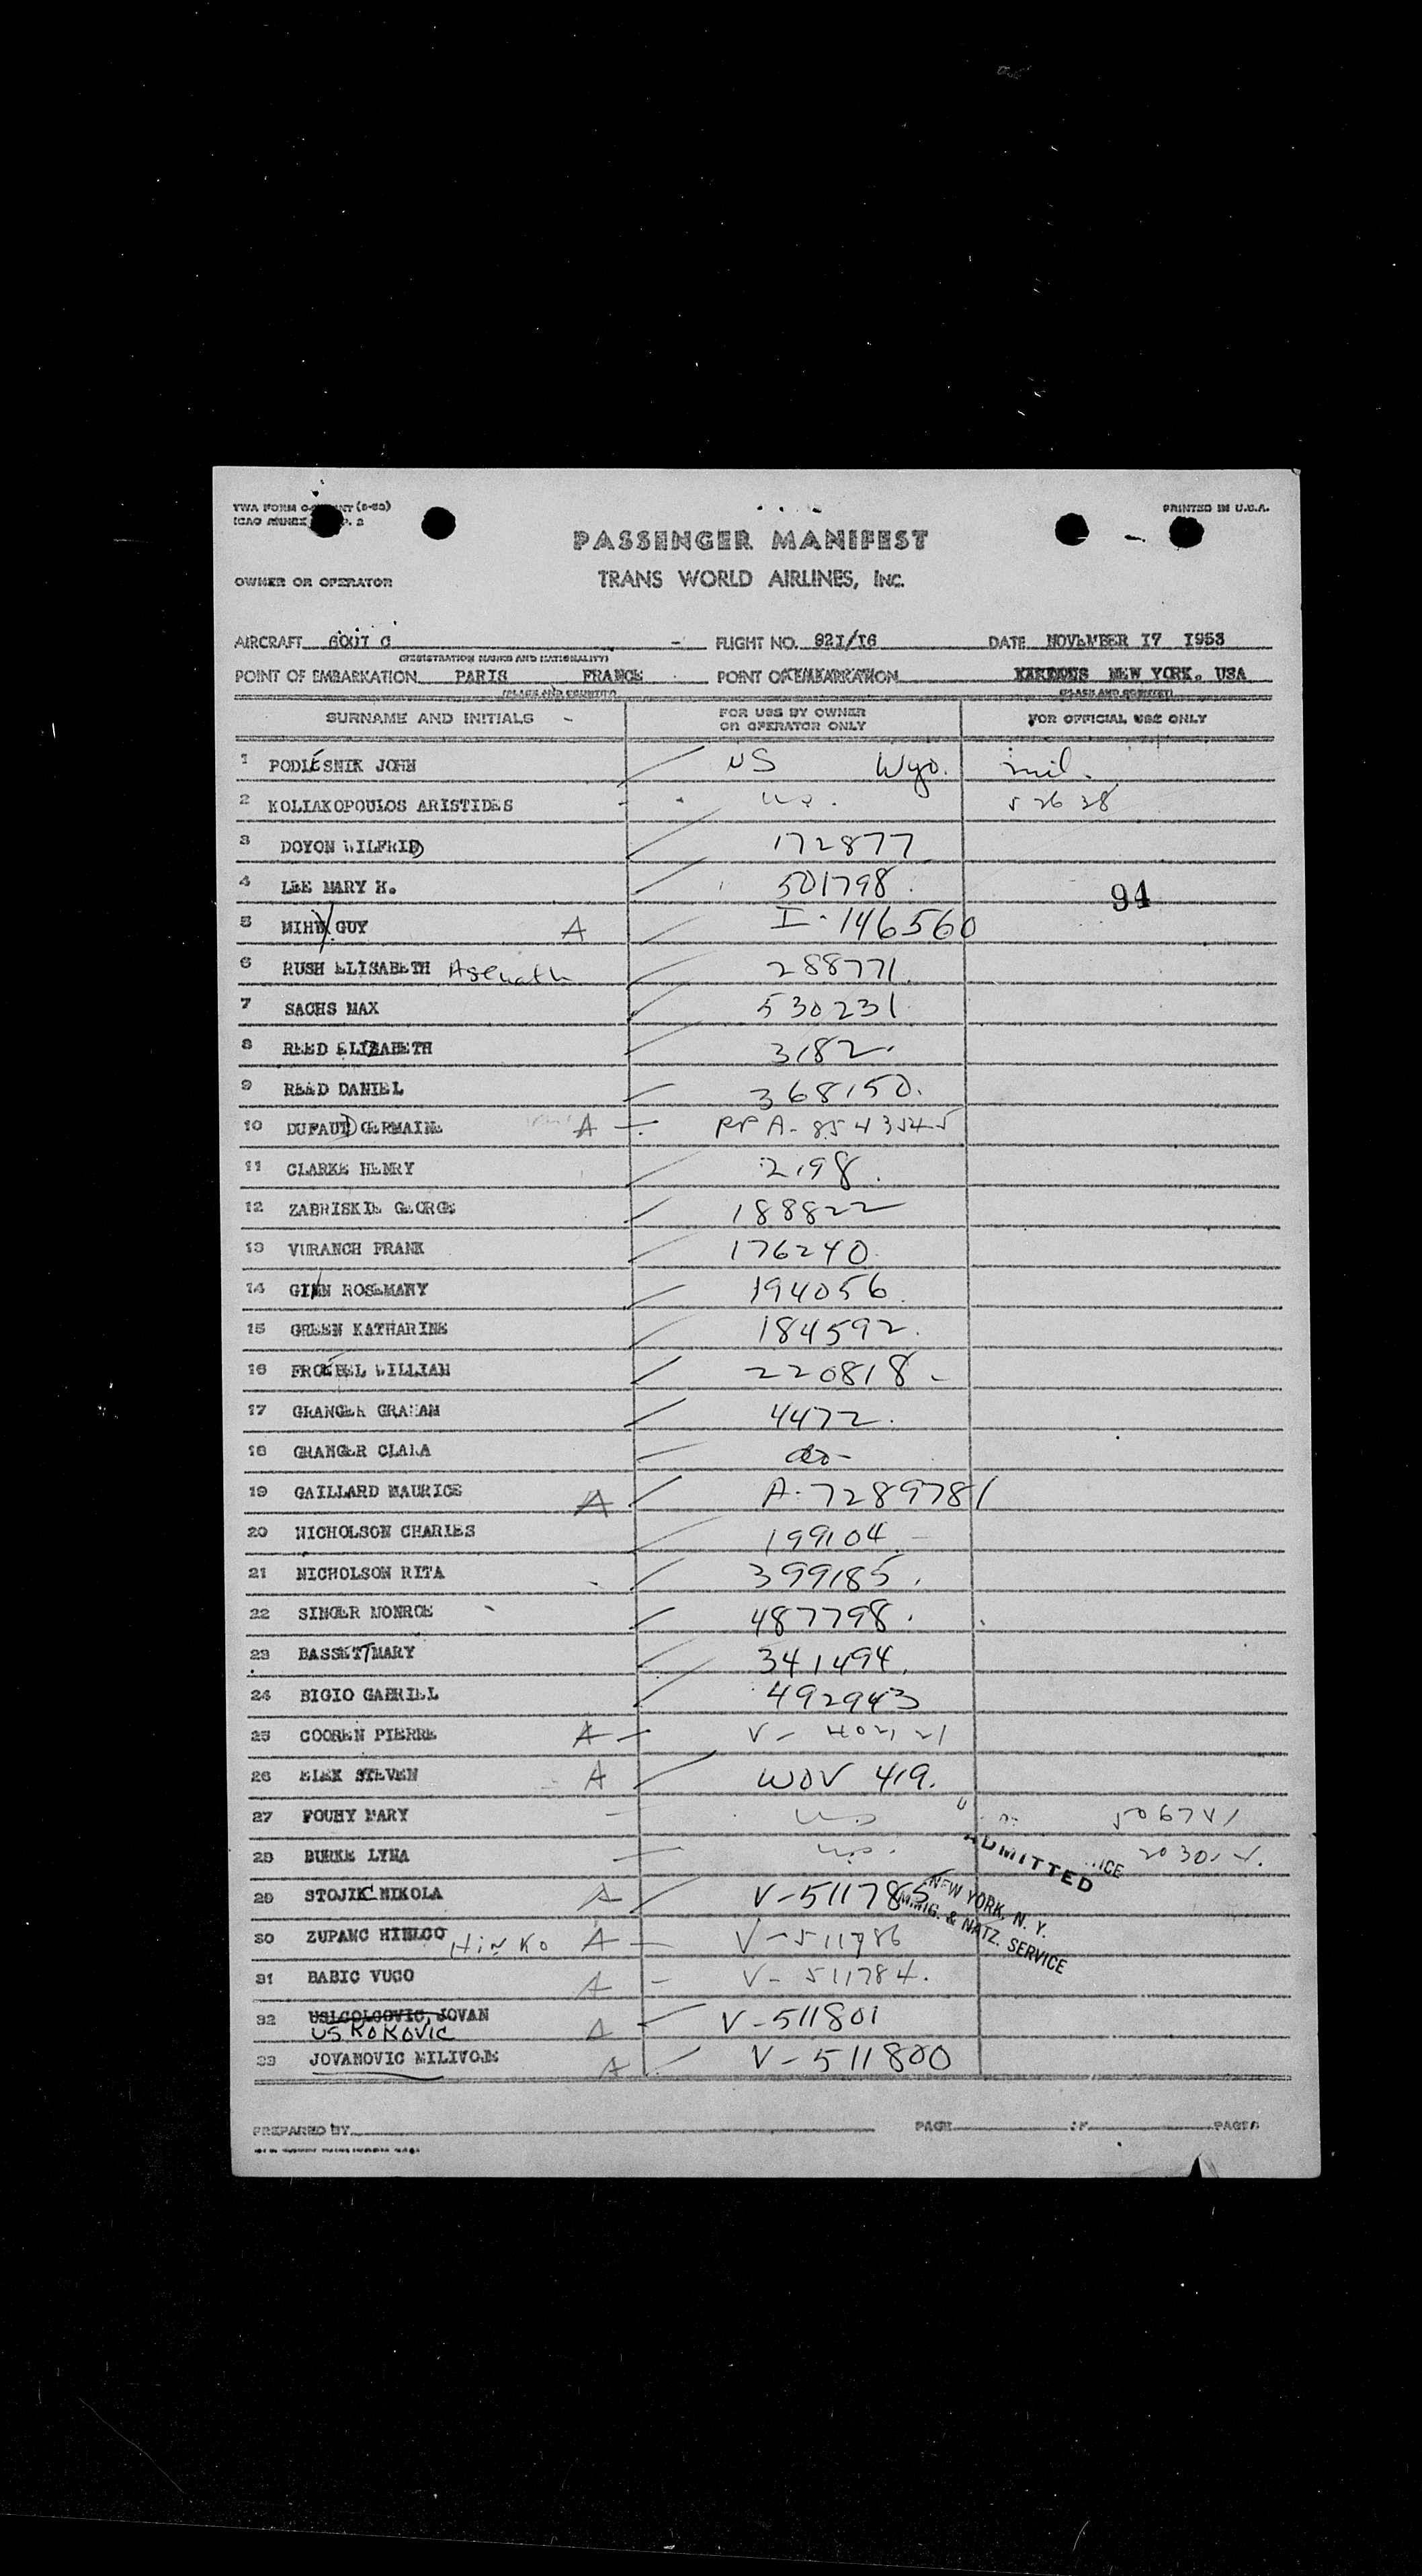 PRINTED IN U.S.A.
PASSENGER MANIFEST
OWNER OR OPERATOR TRANS WORLD AIRLINES, INC.
AIRCRAFT 6001 C FLIGHT NO. 921/16 DATE NOVEMBER 17 1953
(REGISTRATION MARKS AND NATIONALITY)
POINT OF EMBARKATION PARIS FRANCE POINT OF EMBARKATION NEW YORK. USA
(PLACE AND COUNTRY) (PLACE AND COUNTRY)
SURNAME AND INITIALS FOR USE BY OWNER OR OPERATOR ONLY FOR OFFICIAL USE ONLY
1 PODLESNIK JOHN US Wyo.
2 KOLIAKOPOULOS ARISTIDES U.S. 52628
3 DOYON WILFRID 172877
4 LEE MARY H. 501798.
94
5 GUY A I-146560
6 RUSH ELISABETH Asenath 288771.
7 SACHS MAX 530231
8 REED ELIZABETH 3182.
9 READ DANIEL 368150.
10 DUFAUD GERMAINE A
11 CLARKE HENRY 2198.
12 ZABRISKIE GEORGE 188822
13 VURANCH FRANK 176240.
14 GINN ROSEMARY 194056.
15 GREEN KATHARINE 184592.
16 FROEBEL WILLIAM 220818-
17 GRANGER GRAHAM 4472.
18 GRANGER CLARA do-
19 GAILLARD MAURICE A A-7289781
20 NICHOLSON CHARLES 199104.-
21 NICHOLSON RITA 399185.
22 SINGER MONROE 487798.
23 BASSETT MARY 341494.
24 BIGIO GABRIEL 492943
25 COOREN PIERRE A
26 ELEK STEVEN A WOV 419.
27 FOUHY MARY U.S.
28 BURKE LYNA U.S.
ADMITTED
NEW YORK, N. Y.
IMMIG. & NATZ. SERVICE
29 STOJIC NIKOLA A V-511785
30 ZUPANC HINKO A V-511786
31 BABIC VUCO A V-511784.
32 USLCOLCOVIC, JOVAN A V-511801
USKOKOVIC
33 JOVANOVIC MILIVOJE A V-511800
PREPARED BY PAGE OF PAGES